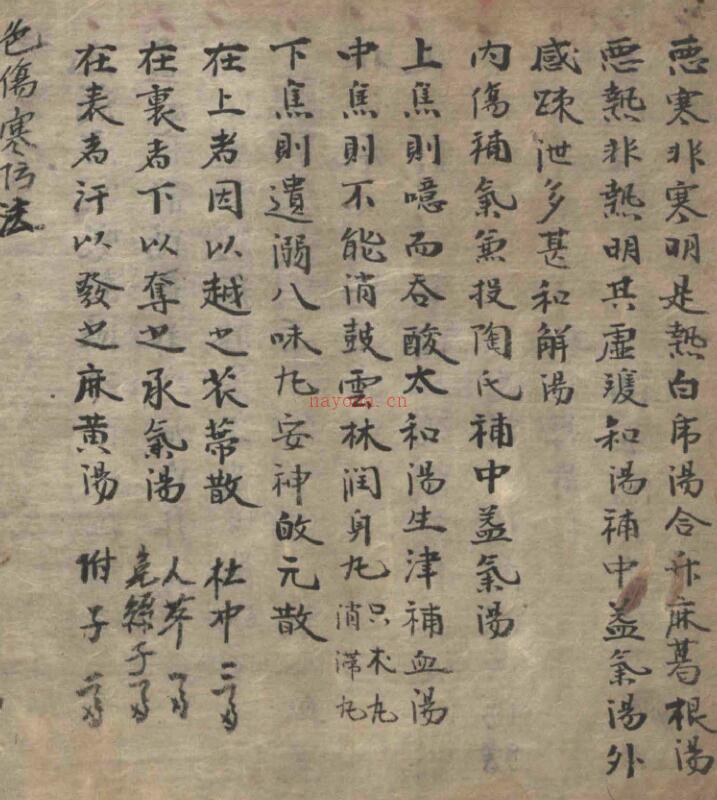 惡寒非寒明是熱白虎湯合升麻葛根湯
惡熱非熱明其虛和湯補中益氣湯外
感疎泄多甚和解湯
內傷補氣兼投陶氏補中益氣湯
上焦則噫而吞酸太和湯生津補血湯
中焦則不能消鼓雲林潤身丸
只朮丸
消滯丸
下焦則遺溺八味丸安神啟元散
在上者因以越之瓜蒂散 杜冲
在裏者下以奪之承氣湯
人參
菟絲子
在表者汗以發之麻黃湯 附子
傷寒法
nayona.cn